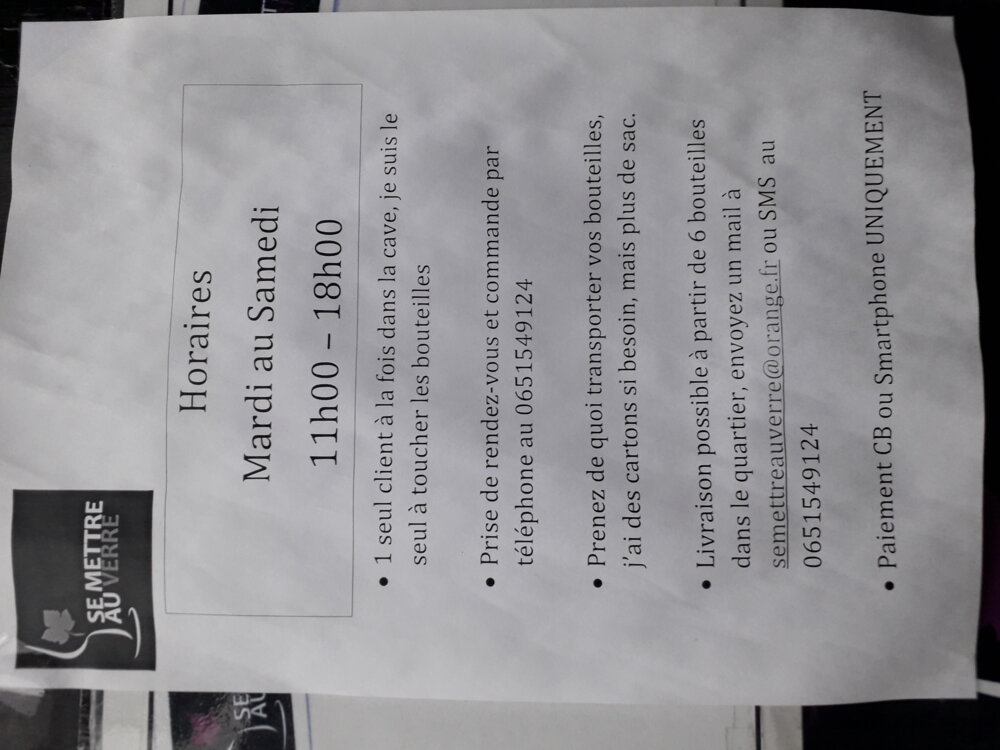 SE METTRE
AU VERRE
Horaires
Mardi au Samedi
11h00 – 18h00
• 1 seul client à la fois dans la cave, je suis le
seul à toucher les bouteilles
• Prise de rendez-vous et commande par
téléphone au 0651549124
• Prenez de quoi transporter vos bouteilles,
j'ai des cartons si besoin, mais plus de sac.
• Livraison possible à partir de 6 bouteilles
dans le quartier, envoyez un mail à
semettreauverre@orange.fr ou SMS au
0651549124
• Paiement CB ou Smartphone UNIQUEMENT
SE
AU